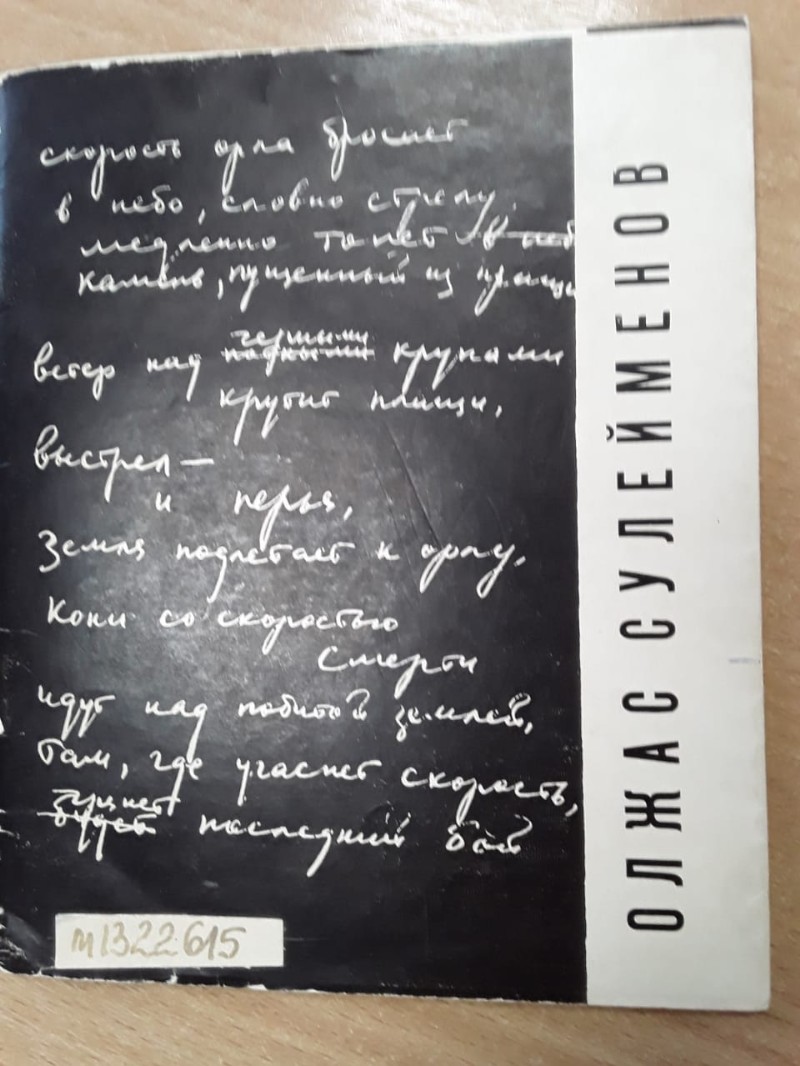 скорость орла бросит
в небо, словно стрелу.
медленно тонет в неб
камень, пущенный из пращи
ветер над
крупами
крутит плащи,
выстрел —
и перья,
Земля подлетает к орлу.
Кони со скоростью
смерти
идут над побитой землей,
Там, где угаснет скорость,
грянет
будет последний бой
м1322615
ОЛЖАС СУЛЕЙМЕНОВ